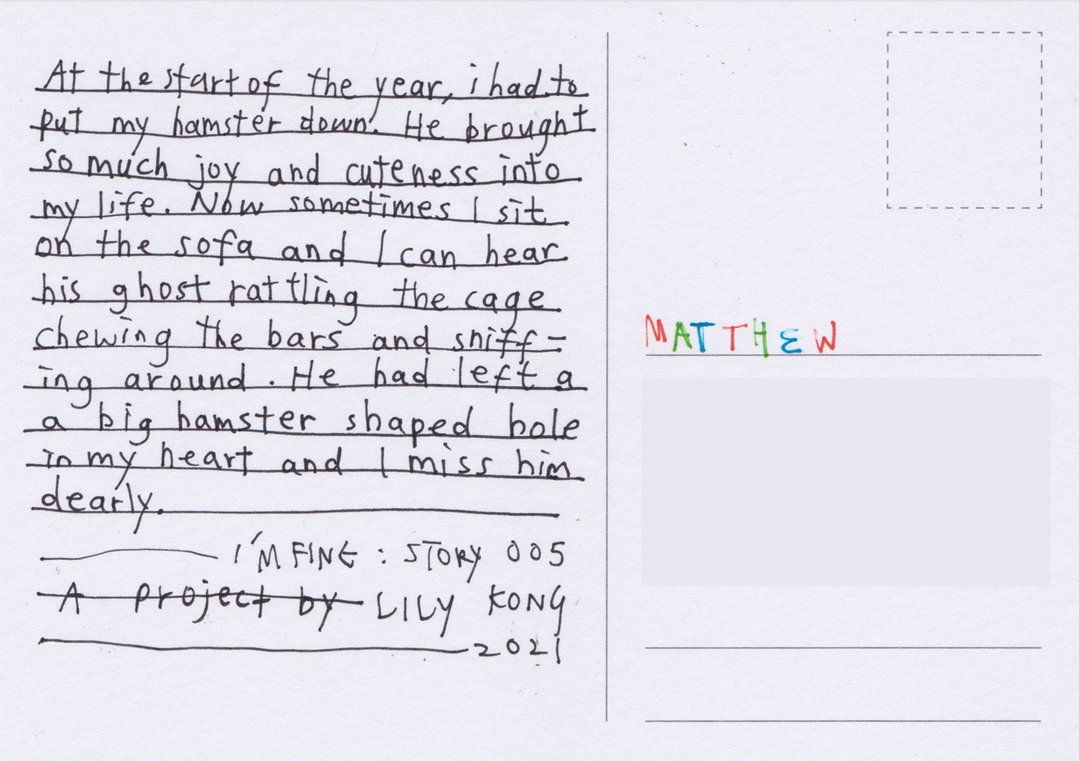 At the start of the year, i had to
put my hamster down. He brought
so much joy and cuteness into
my life. Now sometimes I sit
on the sofa and I can hear
his ghost rattling the cage
chewing the bars and sniff-
ing around. He had left a
a big hamster shaped hole
in my heart and I miss him
dearly.
I'M FINE: STORY 005
A project by LILY KONG
2021
MATTHEW